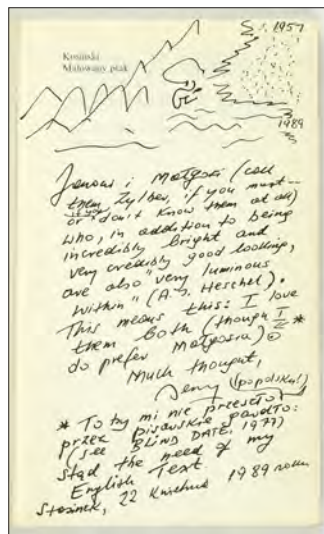 1957
Kosiński
Malowany ptak
1989
Janusz i Małgosi (call
them Zylber, if you must --
or if you don't know them at all)
who, in addition to being
incredibly bright and
very credibly good looking,
are also "very luminous
within" (A.J. Heschel).
This means this: I love
them both (though I *
do prefer Małgosia)
Much thought,
Jerzy (po polsku!)
* To by mi nie przeszło
przez pisarskie gardło:
(see BLIND DATE, 1977)
stąd the need of my
English Text
22 Kwietnia 1989 roku